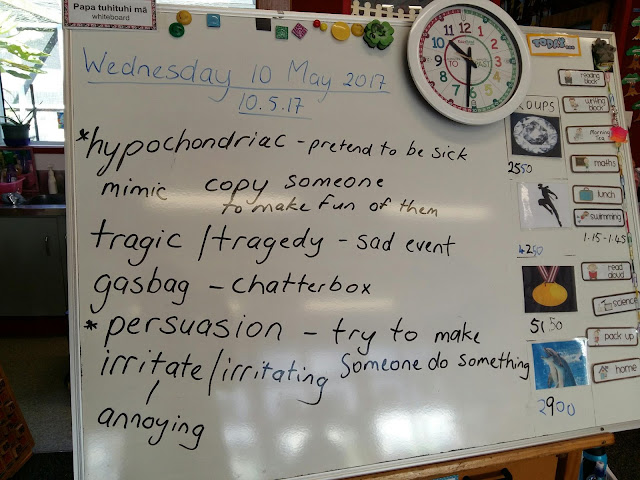 Papa tuhituhi mā
whiteboard
Wednesday 10 May 2017
10.5.17
*hypochondriac - pretend to be sick
mimic copy someone
to make fun of them
tragic / tragedy - sad event
gasbag - chatterbox
* persuasion - try to make
someone do something
irritate / irritating
/
annoying
12
1
2
3
4
5
6
7
8
9
10
11
PAST
TO
TODAY...
reading block
writing block
Morning Tea
maths
lunch
swimming
1.15-1.45
read aloud
science
pack up
home
oups
2550
4250
5150
2900